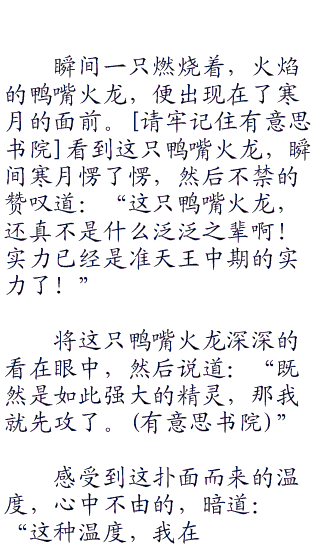 瞬间一只燃烧着，火焰
的鸭嘴火龙，便出现在了寒
月的面前。[请牢记住有意思
书院]看到这只鸭嘴火龙，瞬
间寒月愣了愣，然后不禁的
赞叹道：“这只鸭嘴火龙，
还真不是什么泛泛之辈啊！
实力已经是准天王中期的实
力了！”
将这只鸭嘴火龙深深的
看在眼中，然后说道：“既
然是如此强大的精灵，那我
就先攻了。(有意思书院)”
感受到这扑面而来的温
度，心中不由的，暗道：
“这种温度，我在